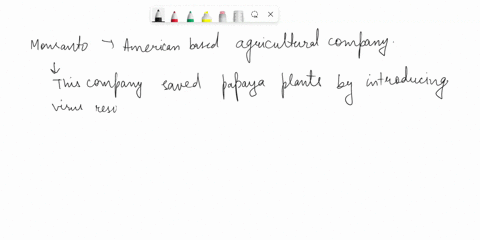 Monsanto → American based agricultural company.
↓
This company saved papaya plants by introducing
virus res